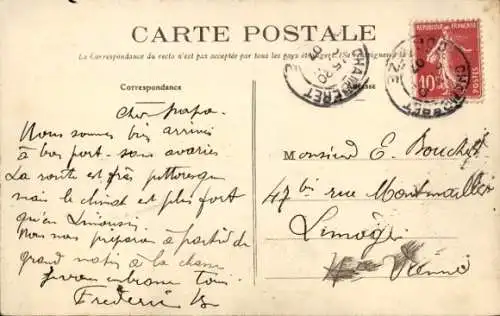 CARTE POSTALE
La Correspondance du recto n'est pas acceptée par tous les pays étrangers (Se renseigner à la
Correspondance
Adresse
REPUBLIQUE FRANÇAISE
10
POSTES
CHAMBERET
CHAMBERET
cher papa.
Nous sommes bien arrivés
à bon port sans avaries
La route est très pittoresque
mais le climat est plus fort
qu'en Limousin.
Nous nous préparons à partir de
grand matin à la chasse
embrasse tous.
Frédéric B
Monsieur E. Bouchet
47 bis rue Montmailler
Limoges
Hte Vienne